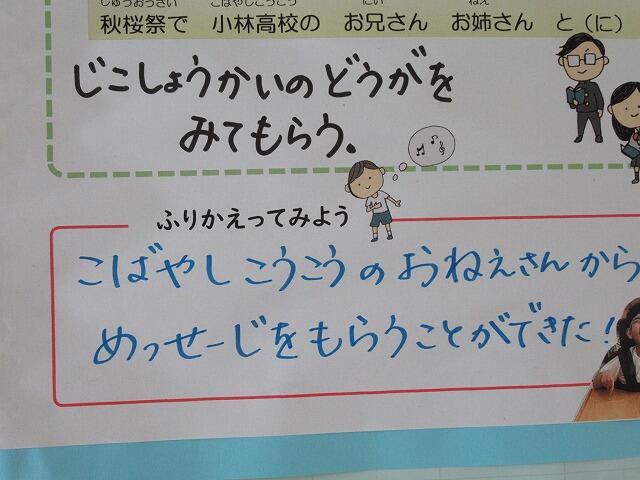 しゅうおうさい こばやしこうこう にい ねえ
秋桜祭で 小林高校の お兄さん お姉さん と（に）
じこしょうかいのどうがを
みてもらう。
ふりかえってみよう
こばやしこうこうのおねえさんから
めっせーじをもらうことができた！